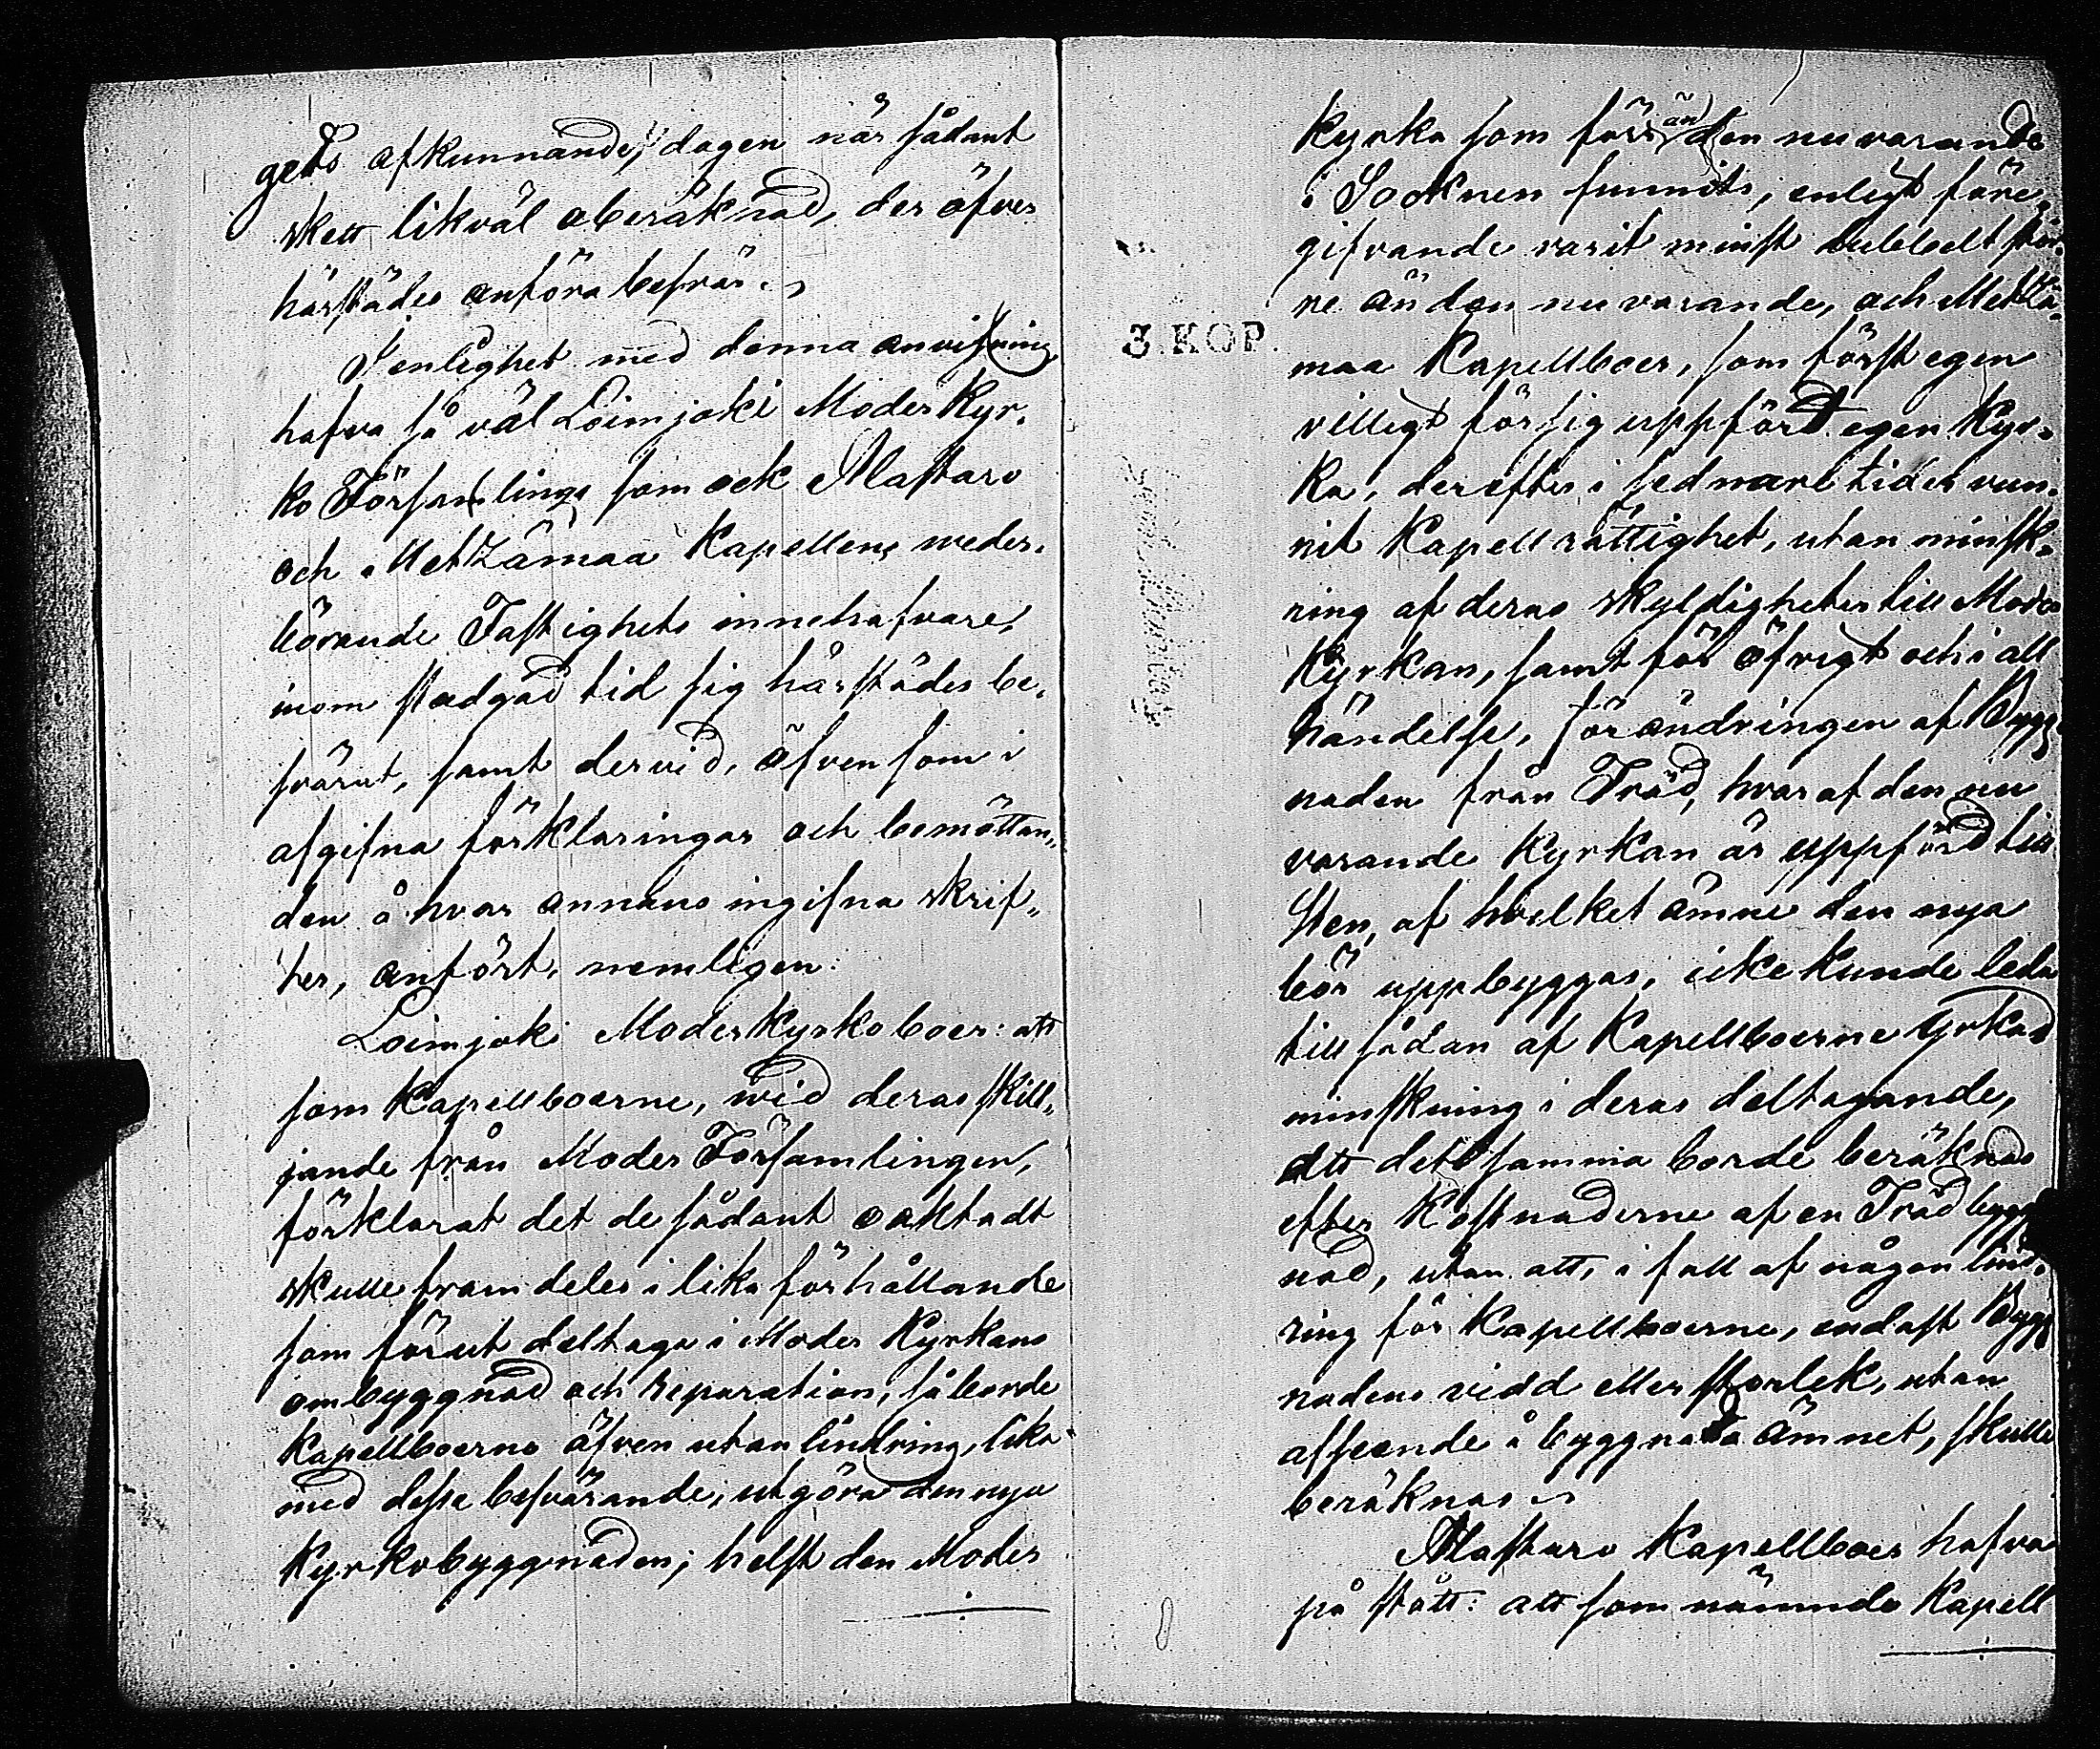 gets afkunnande, dagen när sådant
skett likväl oberäknad, der öfver
härstädes anföra besvär.
I enlighet med denna anvisning
hafva så väl Loimjoki Moder Kyr-
ko Församlings som ock Alastaro
och Metzämaa Kapellens weder-
börande Fastighets innehafvare,
inom stadgad tid sig härstädes be-
svärat, samt dervid, äfvensom i
afgifna förklaringar och bemöttan-
den å hvar annans ingifna skrif-
ter, anfört, nemligen:
Loimjoki Moderkyrkoboer: att
som Kapellboerne, wid deras skill-
jande från Moder Församlingen,
förklarat det de sådant oaktadt
skulle framdeles i lika förhållande
som förut deltaga i Moder Kyrkans
ombyggnad och reparation, så borde
Kapellboerne äfven utan lindring, lika
med desse besvärande, utgöra den nya
Kyrkobyggnaden; helst den Moder
3. KOP.
Kyrka som förr än den nuvarande
i Socknen funnits, enligt före-
gifvande varit minst dubbelt stör-
re än den nu varande, och Metzä-
maa Kapellboer, som först egen
villigt för sig uppfört egen Kyr-
ka, derefter i sednare tider vun-
nit Kapell rättighet, utan minsk-
ning af deras skyldigheter till Moder
Kyrkan, samt för öfrigt och i all
händelse, förändringen af Bygg
naden från Träd, hvaraf den nu
varande Kyrkan är uppförd till
Sten, af hvilket ämne den nya
bör uppbyggas, icke kunde leda
till sådan af Kapellboerne yrkad
minskning i deras deltagande,
att detsamma borde beräknas
efter kostnaderne af en Träd bygg
nad, utan att, i fall af någon lind-
ring för Kapellboerne, endast Bygg
nadens vidd eller storlek, utan
afseende å byggnads ämnet, skulle
beräknas.
Alastaro Kapellboer hafva
på stått: att som nämnde Kapell